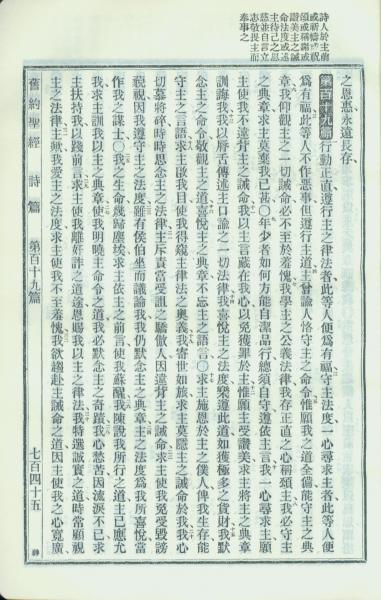 詩人於主前
或祈禱或祝
頌或稱謝或
讚美主之誡
命法度或述
主待己之恩
慈兼自言立
志敬畏主而
奉事之
之恩惠永遠長存
第百十九篇 行動正直遵行主之律法者此等人便爲有福守主法度一心尋求主者此等人便
爲有福此等人不作惡事但遵行主道主曾諭人恪守主之命令惟願我之道全備能守主之典
章我仰觀主之一切誡命必不至於羞愧我學主之公義法律我存正直之心稱頌主我必守主
之典章求主莫棄我已甚○年少者如何方能自潔品行總須自守遵依主言我一心尋求主願
主使我不違背主之誡命我以主言蘊藏在我心以免獲罪於主惟願主受讚美求主將主之典章
訓誨我我以唇舌傳述主口諭之一切法律我喜悅主之法度樂遵此道如獲極多之貨財我默
念主之命令敬觀主之道喜悅主之典章不忘主之語言○求主施恩於主之僕人俾我生存能
守主之言語求主啟我目使我得窺主律法之奧義我寄世如旅求主莫隱主之誡命於我我心
切慕將碎時時思念主之法律主斥責當受詛之驕傲人因違背主之誡命求主使我免受毀謗
藐視因我遵守主之法度雖有侯伯坐而議論我我仍默念主之典章主之法度爲我所喜悅當
作我之謀士○我之生命幾歸塵埃求主依主之前言使我蘇醒我陳說我所行之道主已應允
我求主訓我以主之典章使我明曉主命令之道我必默念主之奇蹟我心愁苦因流淚不已求
主扶持我以踐前言求主使我離奸詐之道途恩賜我以主之律法我特選誠實之道時常顧視
主之法律主歟我愛主之法度求主使我不至羞愧我欲趨赴主誡命之道因主使我之心寬廣
舊約聖經 詩篇 第百十九篇 七百四十五